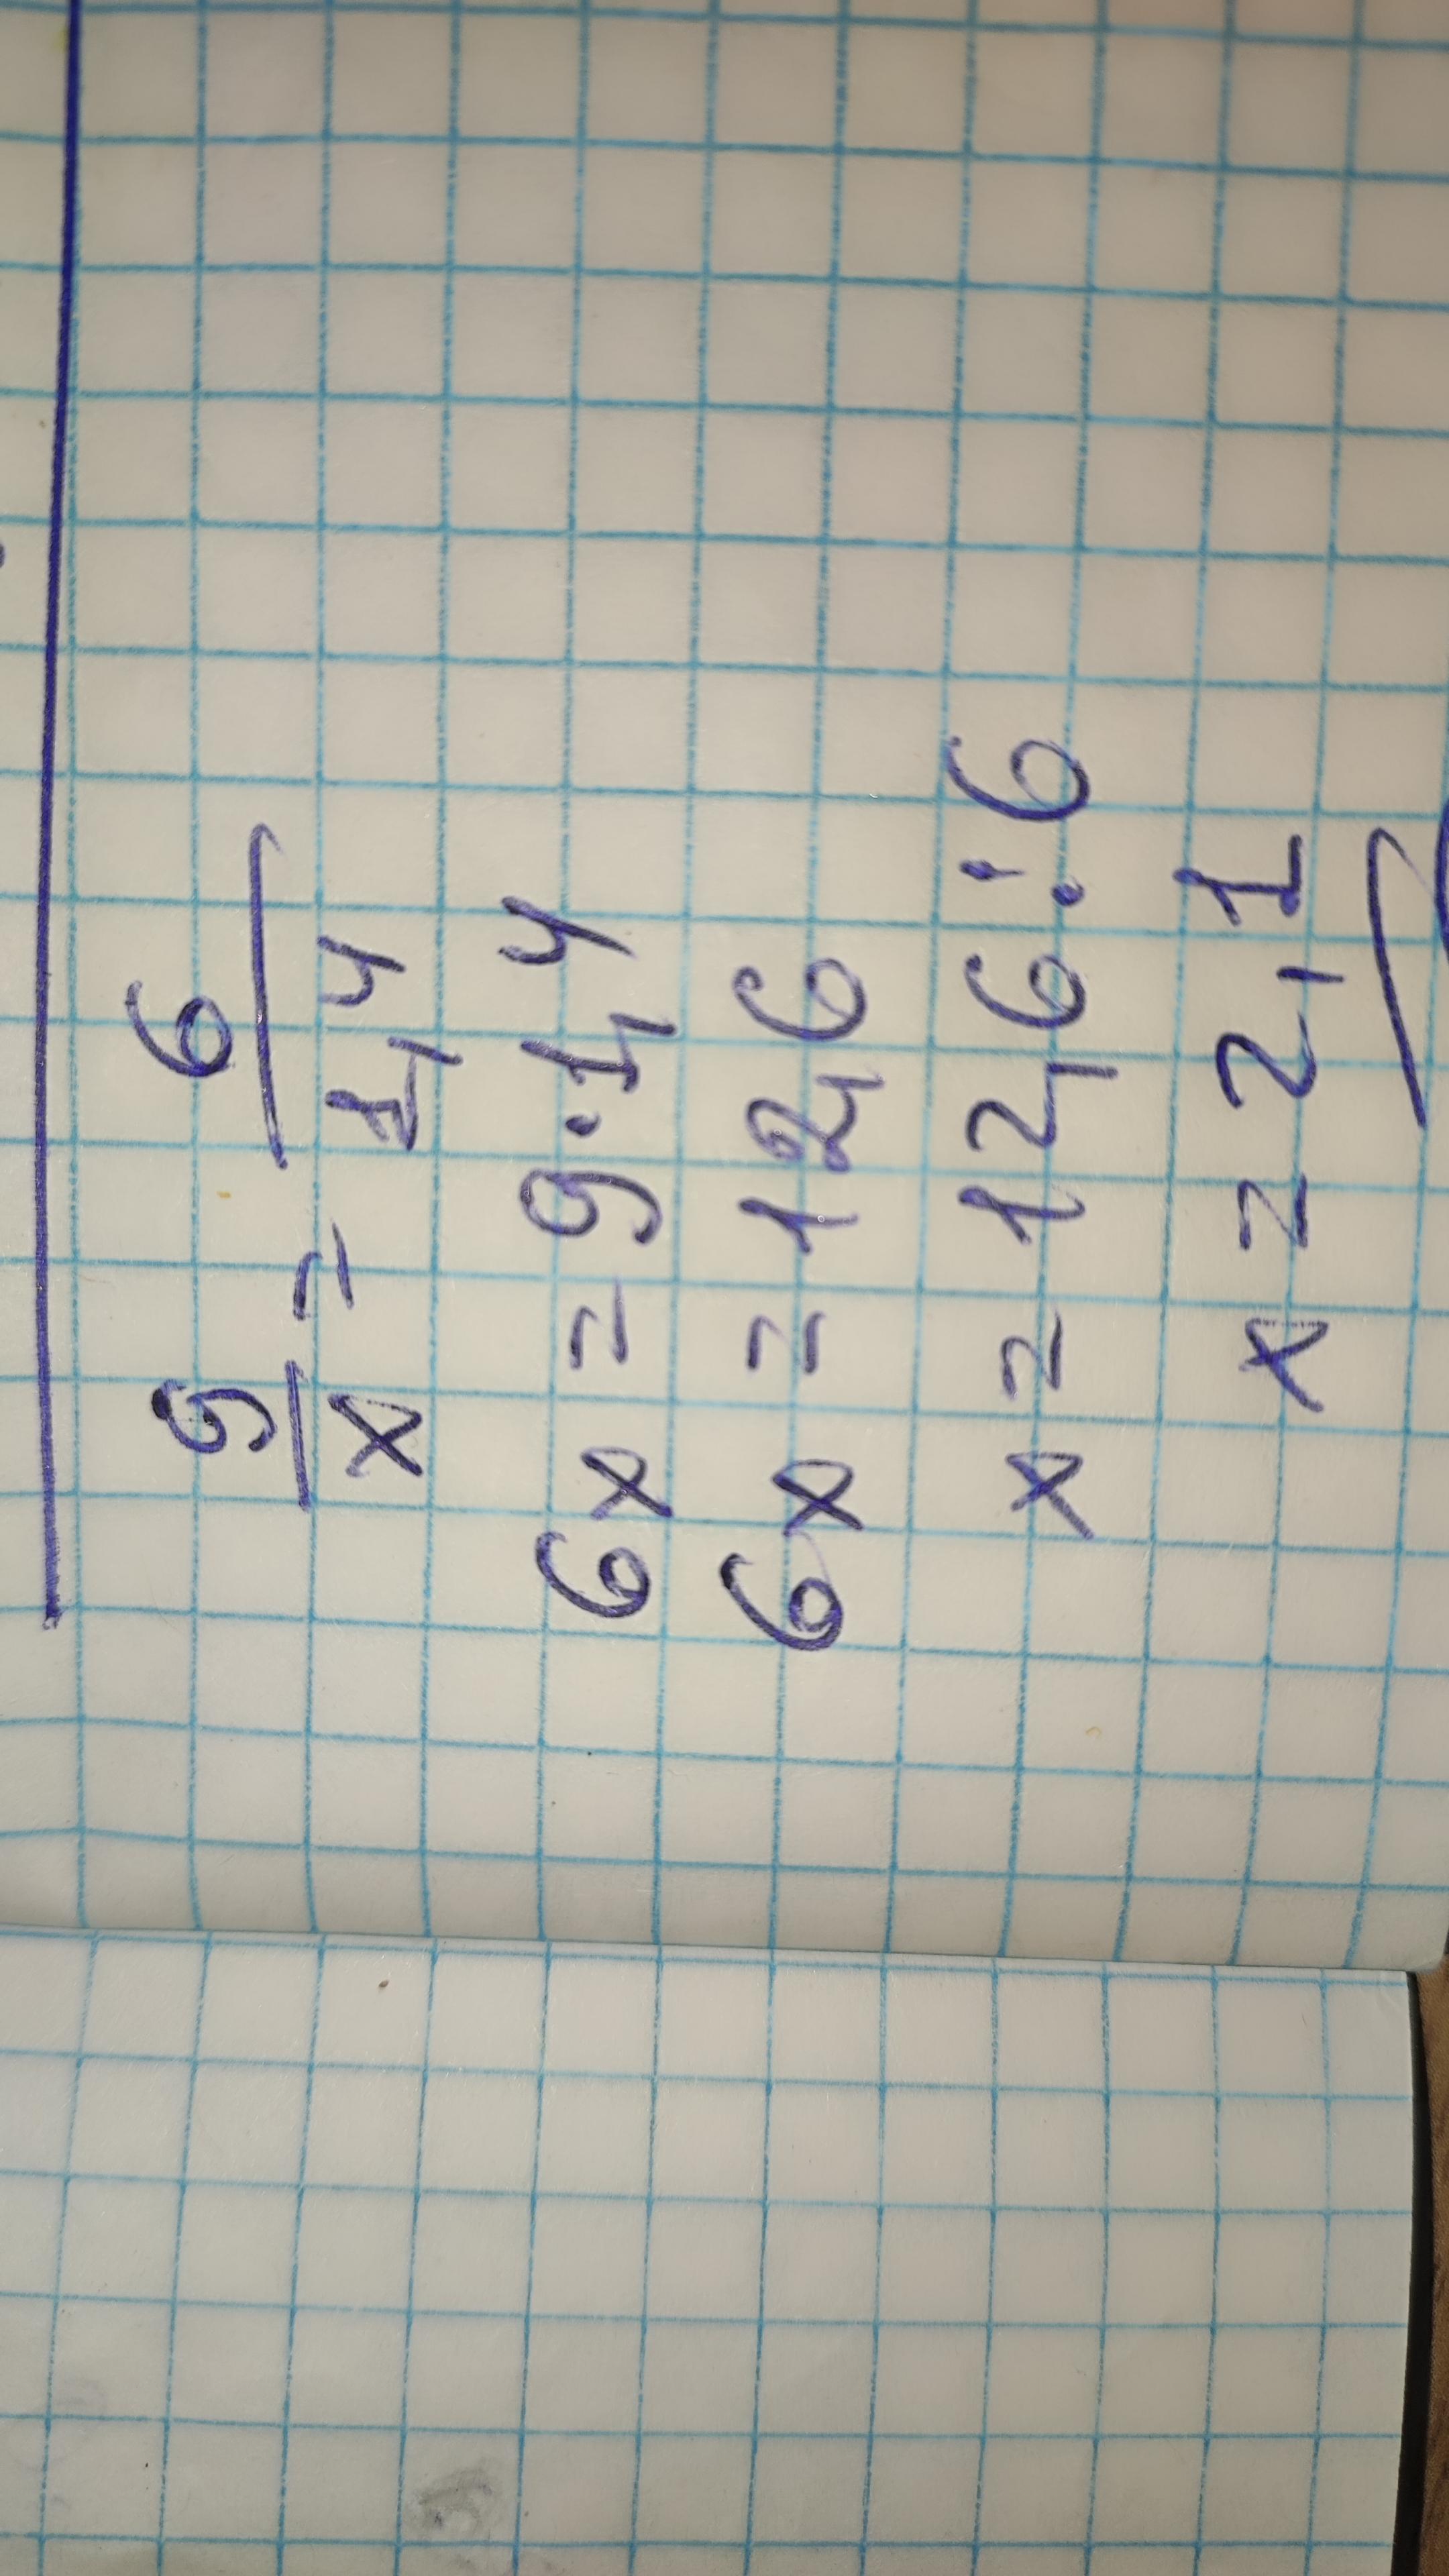 9/x = 6/1,4
6x = 9·1,4
6x = 12,6
x = 12,6:6
x = 2,1